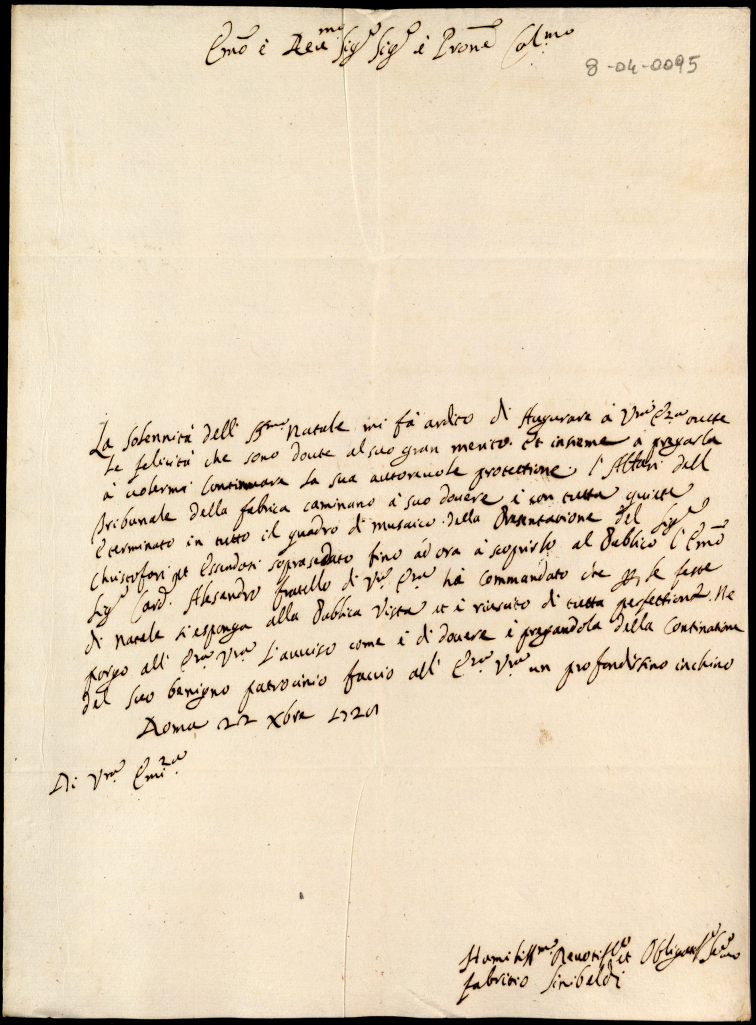 Emo è Reumo Sigr Sigr è Prone Colmo
8-04-0095
La Solennità delli SSmo Natale mi fà ardito di Augurare à Vra Emza tutte
Le felicità che sono doute al suo gran merito. et insieme a pregarla
à uolermi Continuare La sua autoreuole protettione. l'Altari dell
Tribunale della fabrica caminano à suo douere è con tutta quiete
È terminato in tutto il quadro di musaico della Presentazione del Sigr
Christofori et Essendosi soprasedato fino ad ora à scoprirlo al Publico l'Emo
Sigr Card. Alesandro fratello di Vra Emza hà commandato che p le feste
di Natale si esponga alla Publica Vista et è riuscito di tutta perfettione. Ne
porgo all' Emza Vra L'auuiso come è di douere è pregandola della Continatione
del suo benigno patrocinio faccio all' Emza Vra un profondissimo inchino
Roma 22 Xbre 1728
Di Vra Emiza
Humilissmo Deuotisso et Obligatisso Seruo
fabritio Sinibaldi